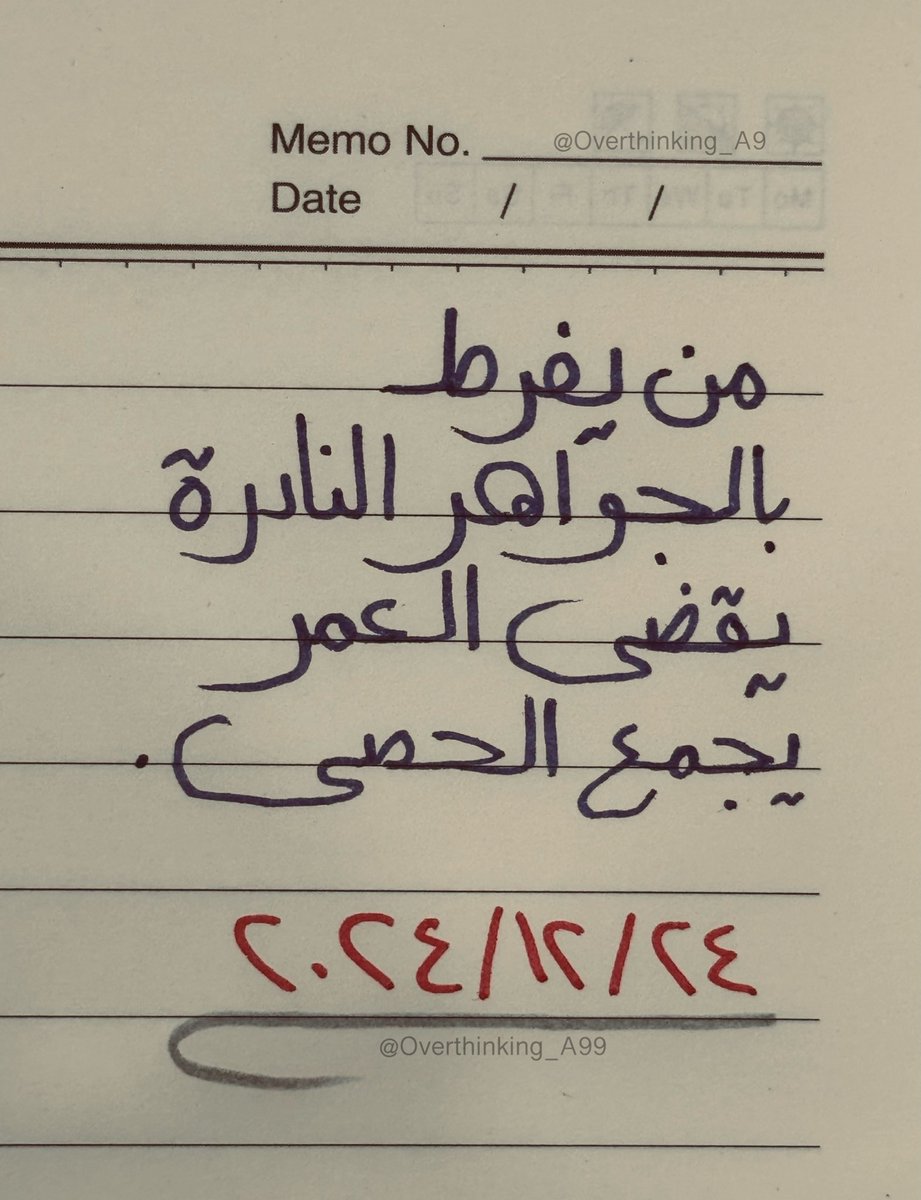 Memo No. @Overthinking_A9
Date / /
من يفرط
بالجواهر النادرة
يقضي العمر
يجمع الحصى.
٢٠٢٤/١٢/٢٤
@Overthinking_A99